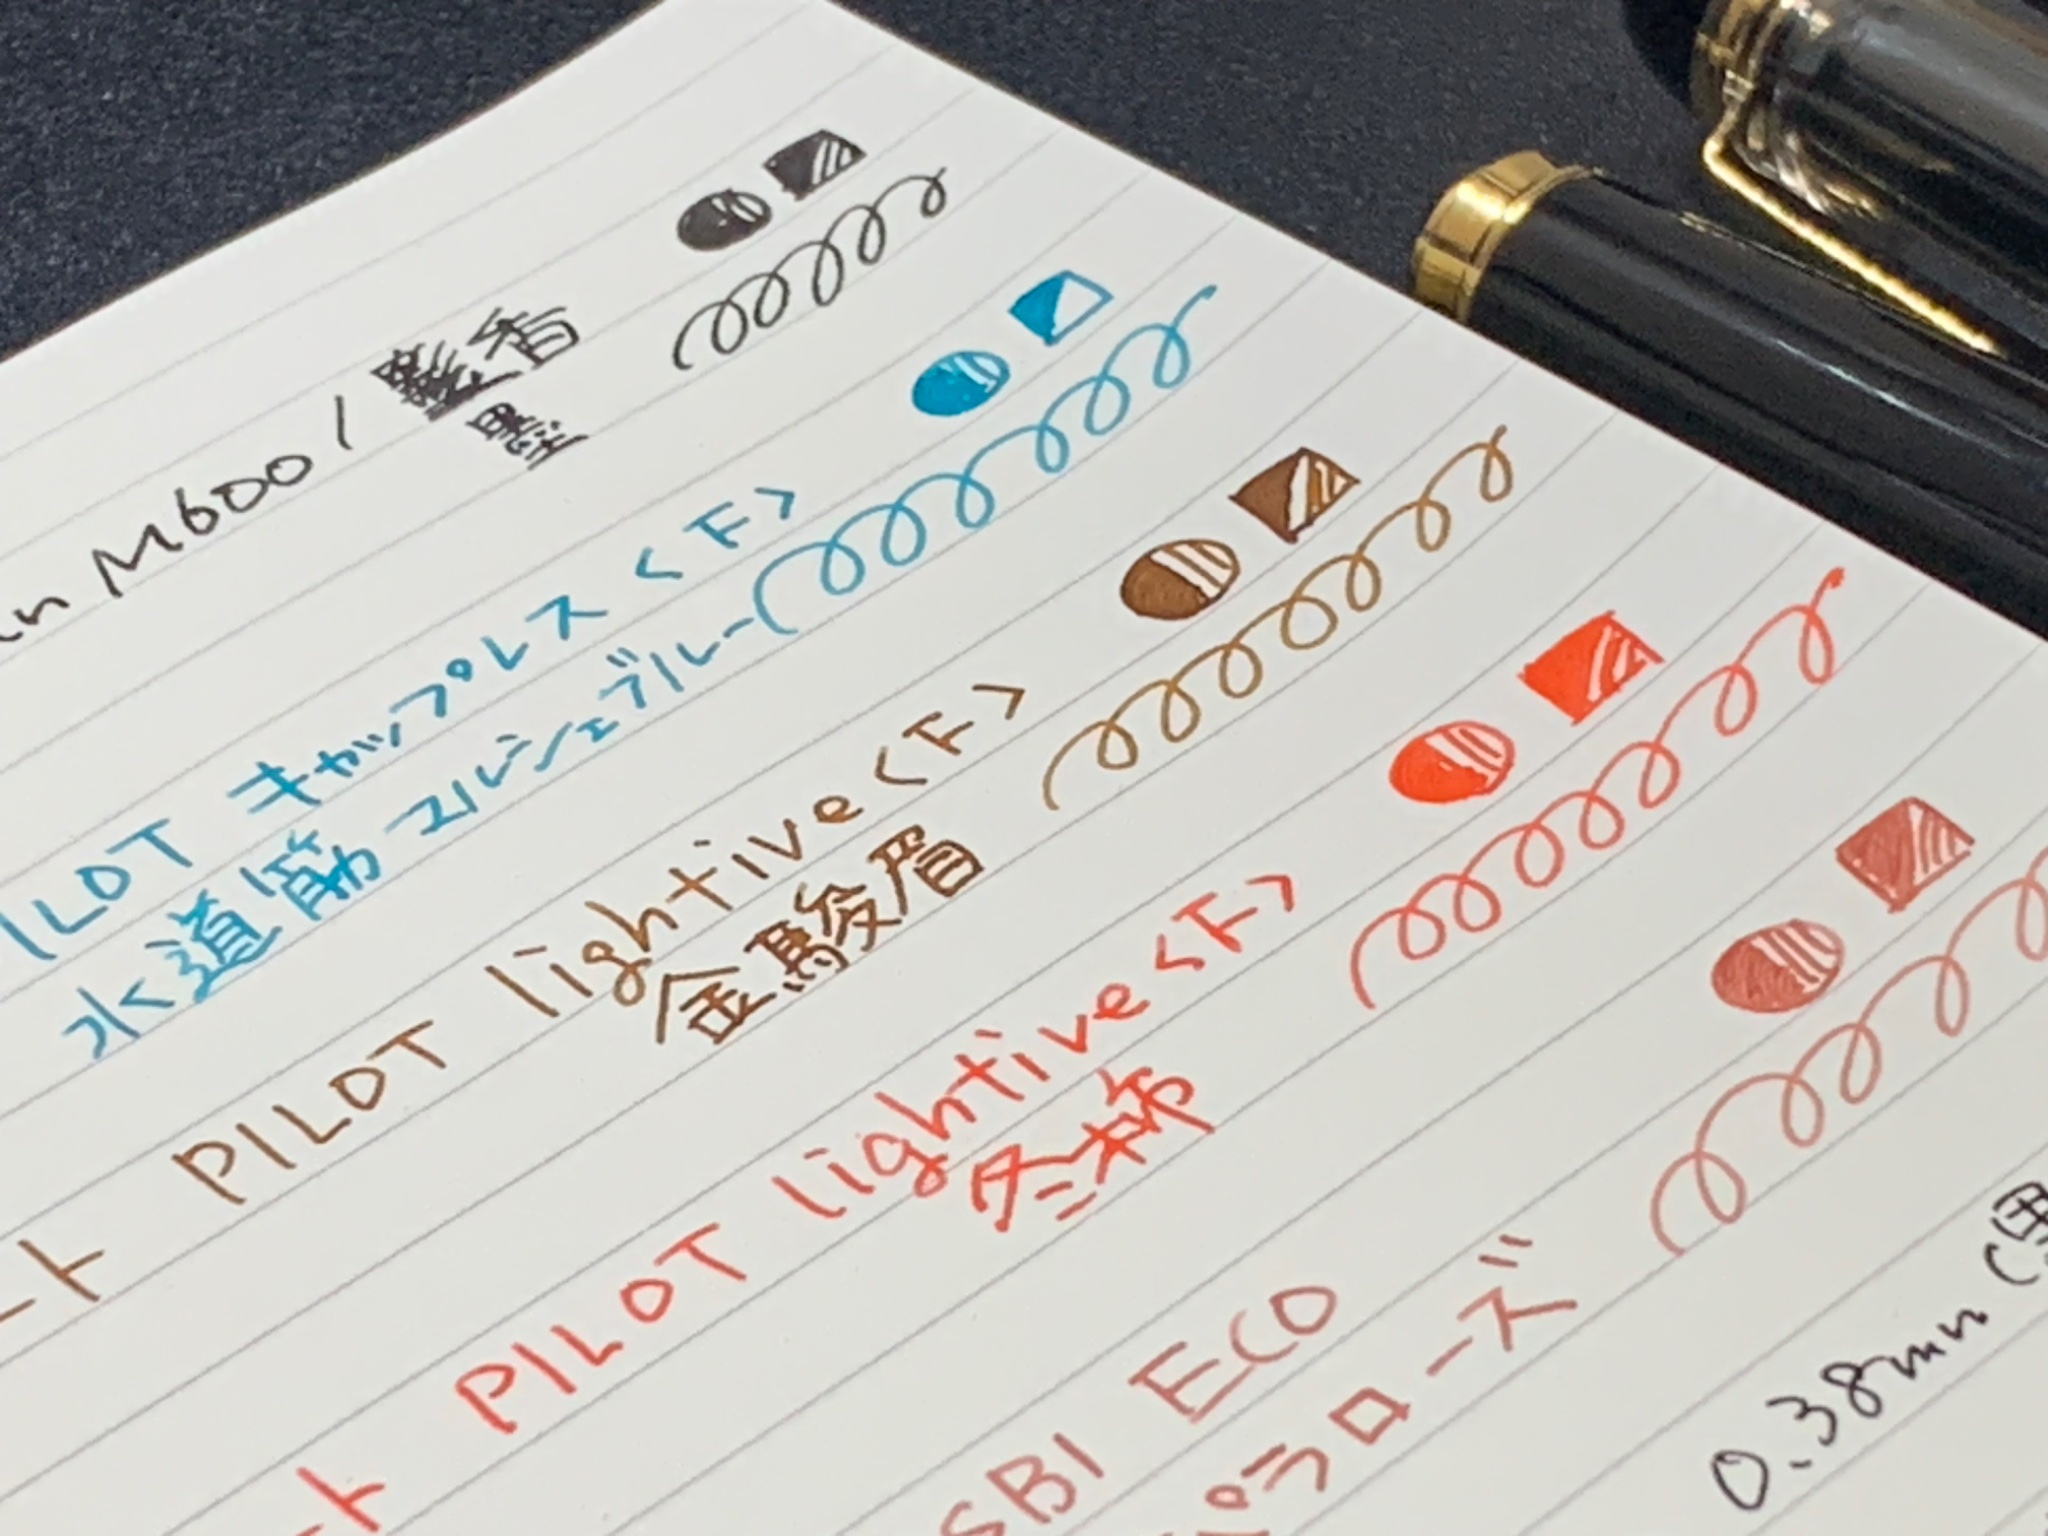 M600 / 麝香
墨
PILOT キャップレス <F>
水道筋 マルシェブルー
PILOT lightive <F>
金駿眉
ート
PILOT lightive <F>
冬柿
ート
SBI ECO
パラローズ
0.38mm (黒